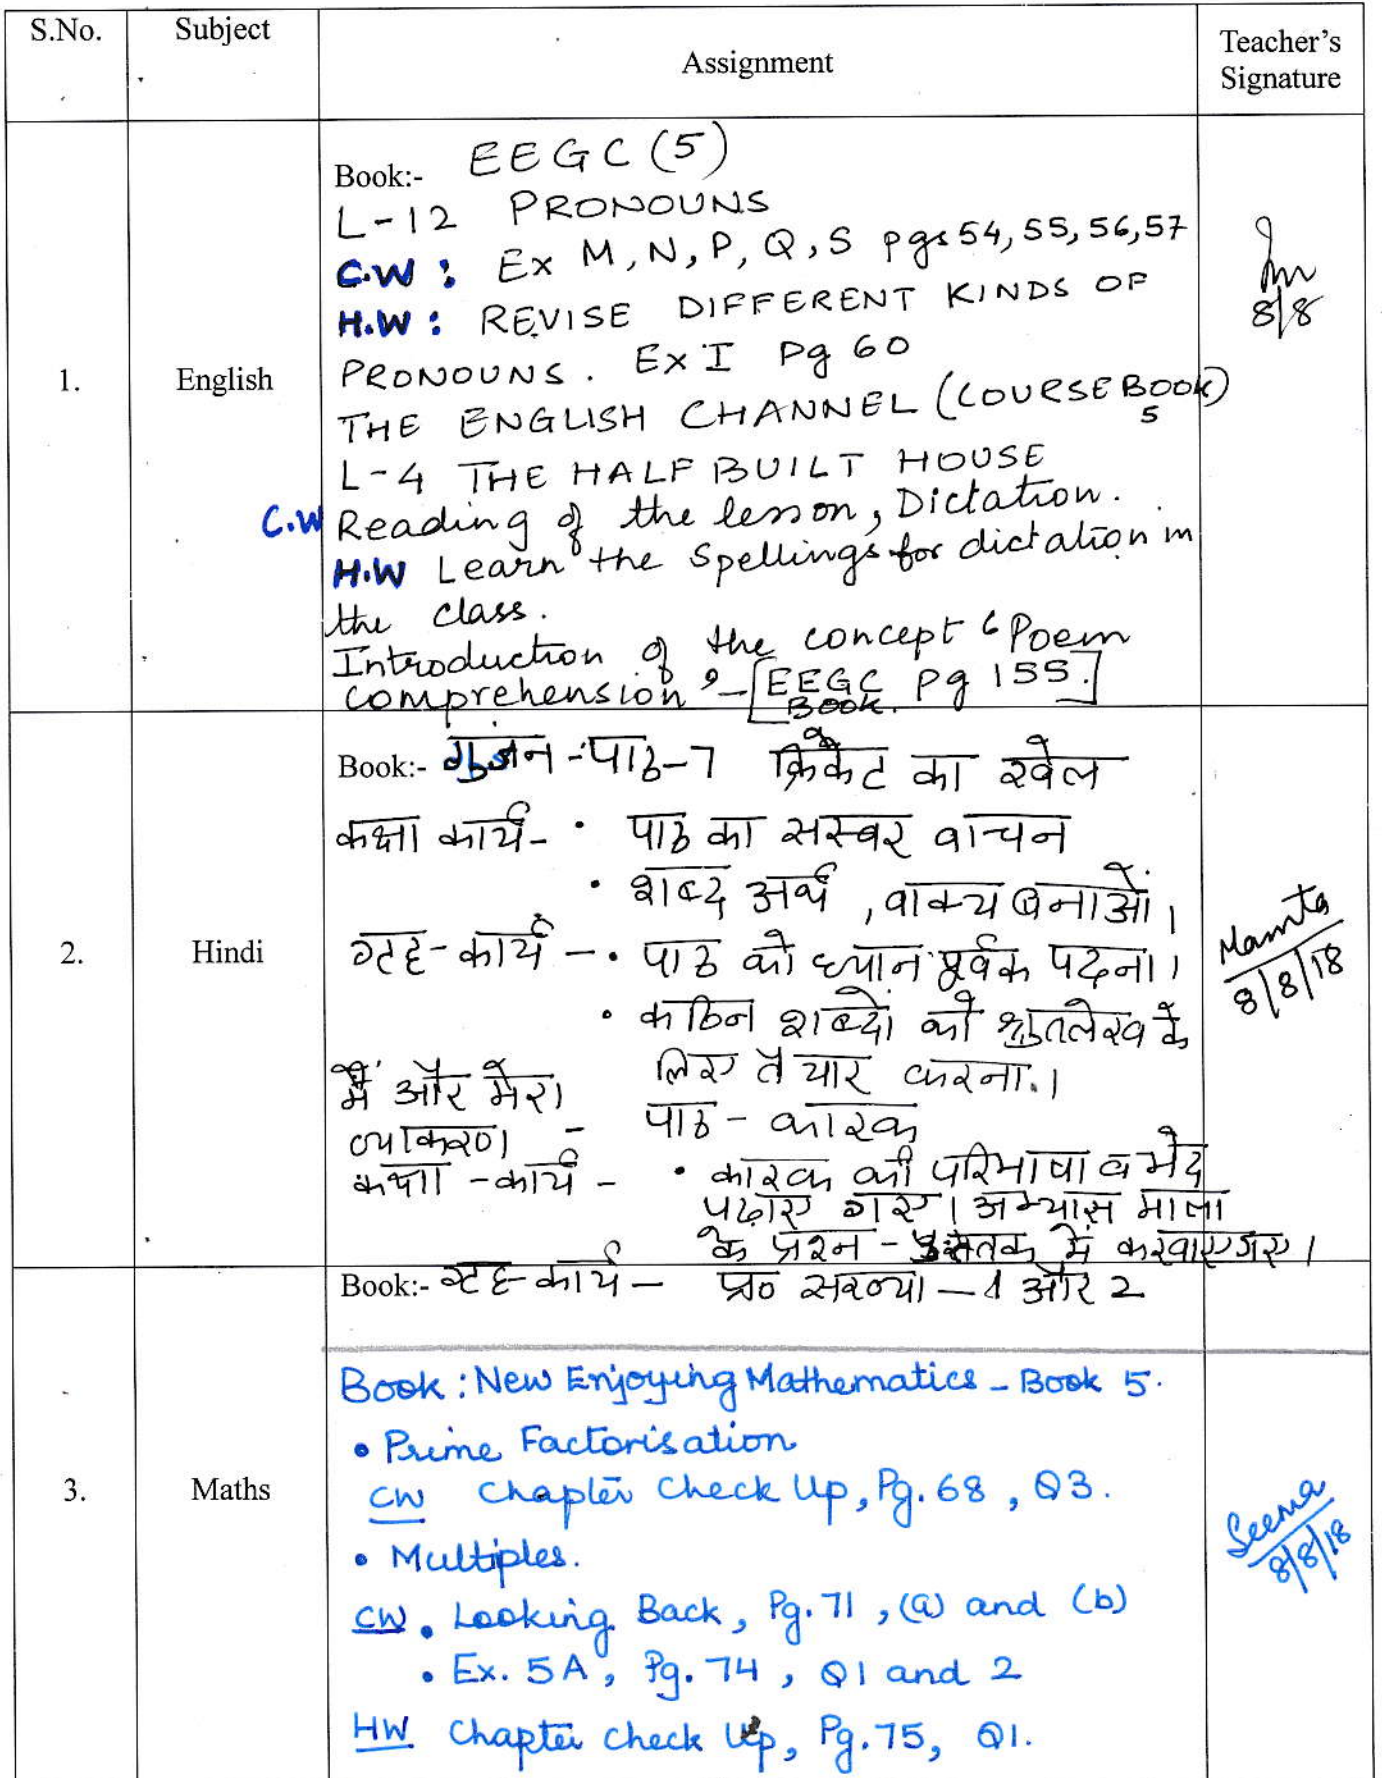 S.No. Subject Assignment Teacher's Signature
Book:- EEGC (5)
L-12 PRONOUNS
C.W : Ex M, N, P, Q, S pgs 54, 55, 56, 57
H.W : REVISE DIFFERENT KINDS OF
PRONOUNS. Ex I Pg 60
THE ENGLISH CHANNEL (COURSE BOOK) 5
L-4 THE HALF BUILT HOUSE
C.W Reading of the lesson, Dictation.
H.W Learn the Spellings for dictation in
the class.
Introduction of the concept 'Poem
comprehension' - [EEGC Book. Pg 155.]
1. English
8/8
Book:- गुंजन - पाठ-7 क्रिकेट का खेल
कक्षा कार्य - • पाठ का सस्वर वाचन
• शब्द अर्थ, वाक्य बनाओं।
गृह-कार्य - • पाठ को ध्यान पूर्वक पढ़ना।
• कठिन शब्दों को श्रुतलेख के
लिए तैयार करना।
मैं और मेरा
व्याकरण - पाठ - कारक
कक्षा - कार्य - • कारक की परिभाषा व भेद
पढ़ाए गए। अभ्यास माला
के प्रश्न - पुस्तक में करवाए गए।
2. Hindi
Mamta
8/8/18
Book:- गृह-कार्य - प्र० संख्या - 1 और 2
Book : New Enjoying Mathematics - Book 5.
• Prime Factorisation
CW Chapter Check Up, Pg. 68, Q3.
• Multiples.
CW • Looking Back, Pg. 71, (a) and (b)
• Ex. 5A, Pg. 74, Q1 and 2
HW Chapter Check Up, Pg. 75, Q1.
3. Maths
Seema
8/8/18